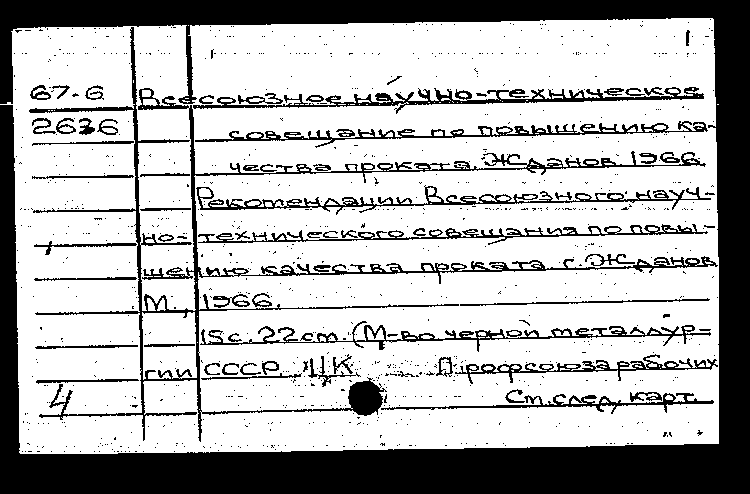 1
67-6 Всесоюзное научно-техническое
2636 совещание по повышению ка-
чества проката. Жданов. 1966.
Рекомендации Всесоюзного науч-
но-технического совещания по повы-
шению качества проката. г. Жданов
М., 1966.
15с. 22см. (М-во черной металлур-
гии СССР. ЦК Профсоюза рабочих
4 См. след. карт.